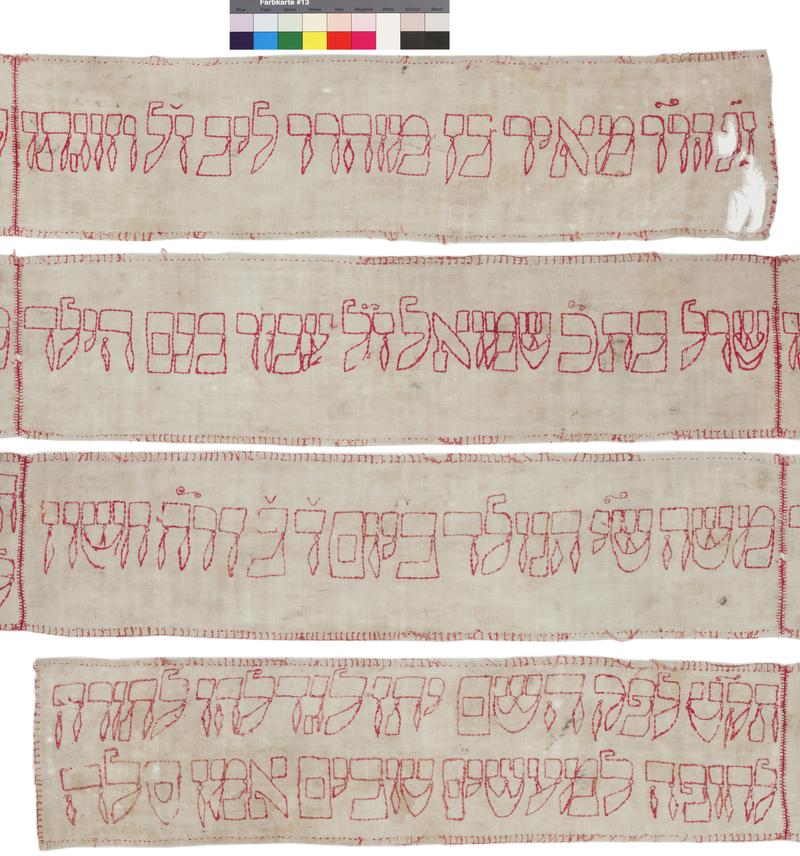 Farbkarte #13
Blue Cyan Green Yellow Red Magenta White 3/Color Black
מאיר בן מוהרר ליב ז"ל
שמואל ז"ל בנם הילד
משה שי' הנולד ביום ד' ב' דר"ח חשון
לפק השם יגדלהו לתורה
לחופה למעשים טובים אמן סלה